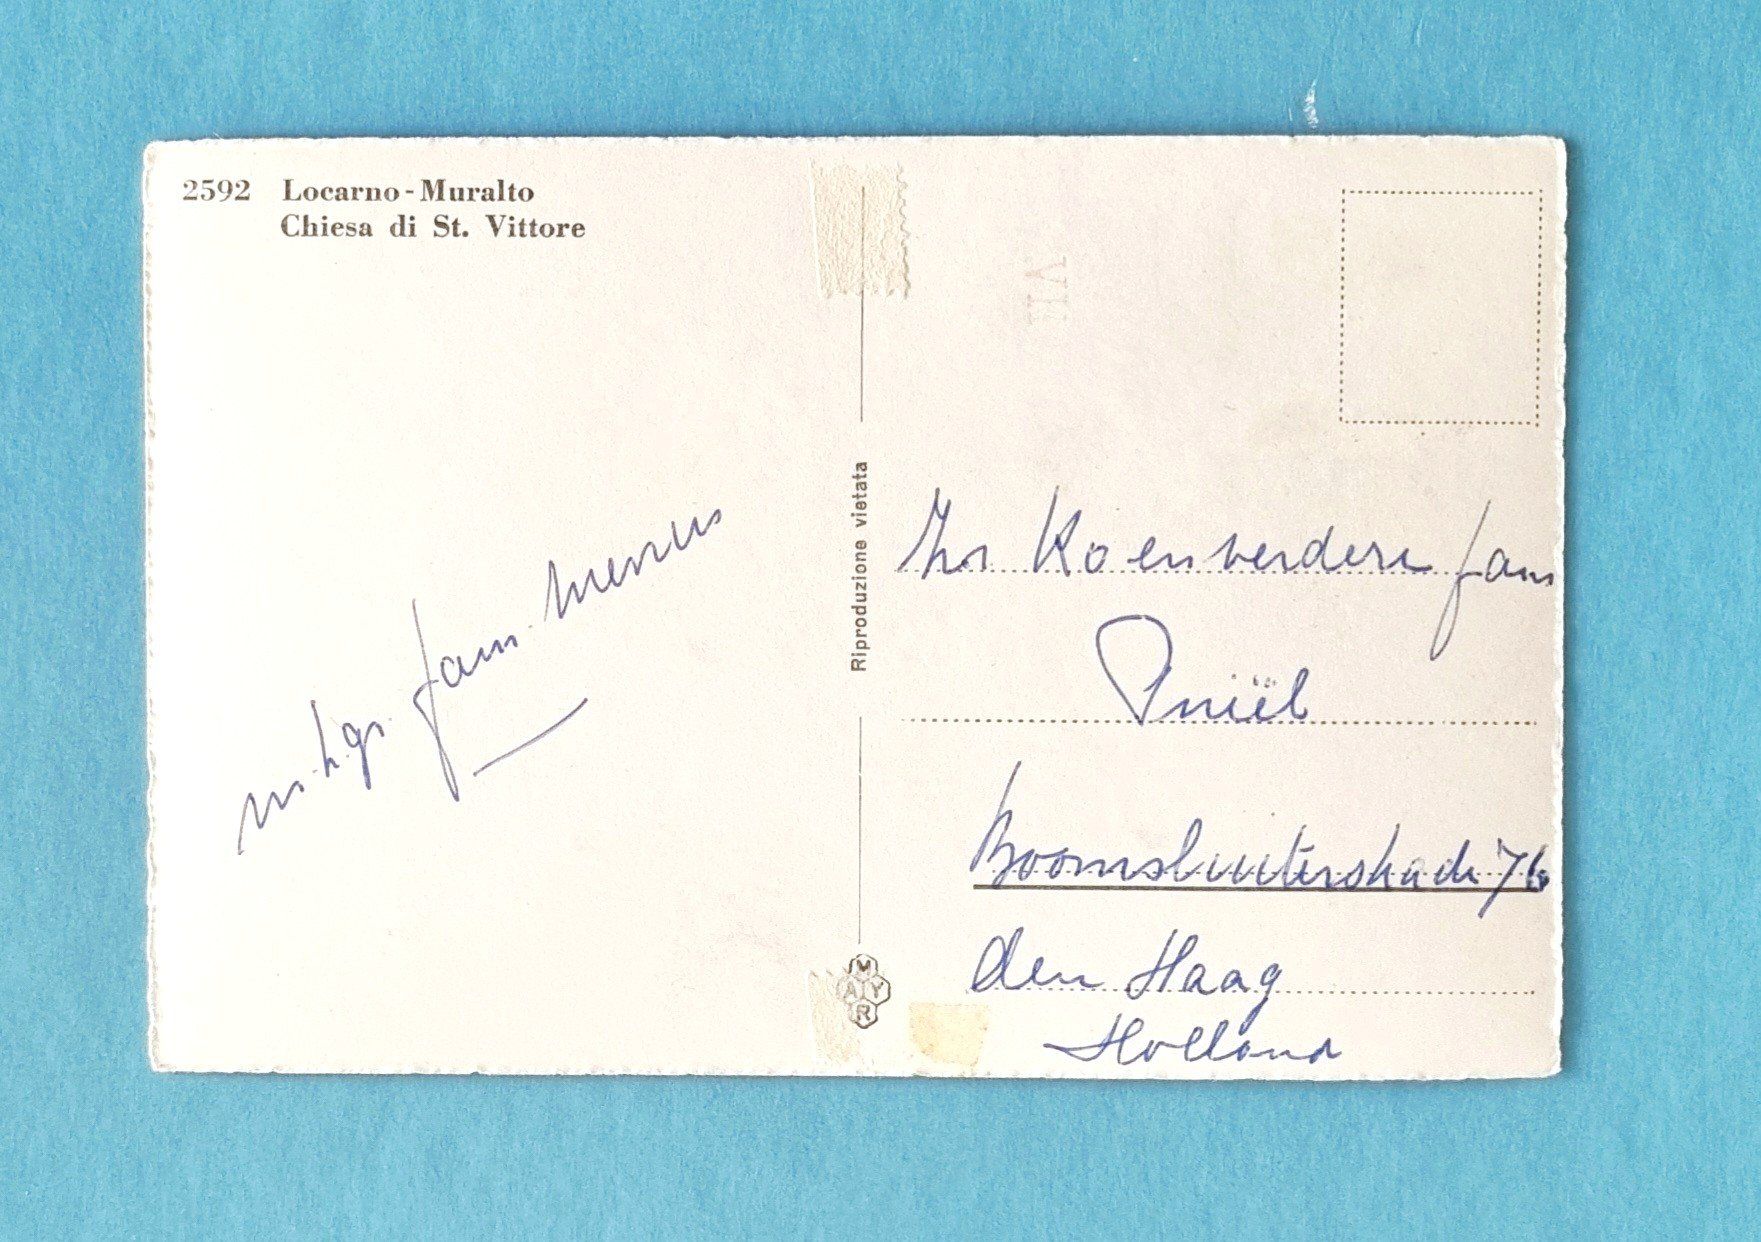 2592 Locarno-Muralto
Chiesa di St. Vittore
m.h.gr. fam.
Riproduzione vietata
MAYR
Koenverdere fam
Pniël
Boomsluiterskade 76
den Haag
Holland